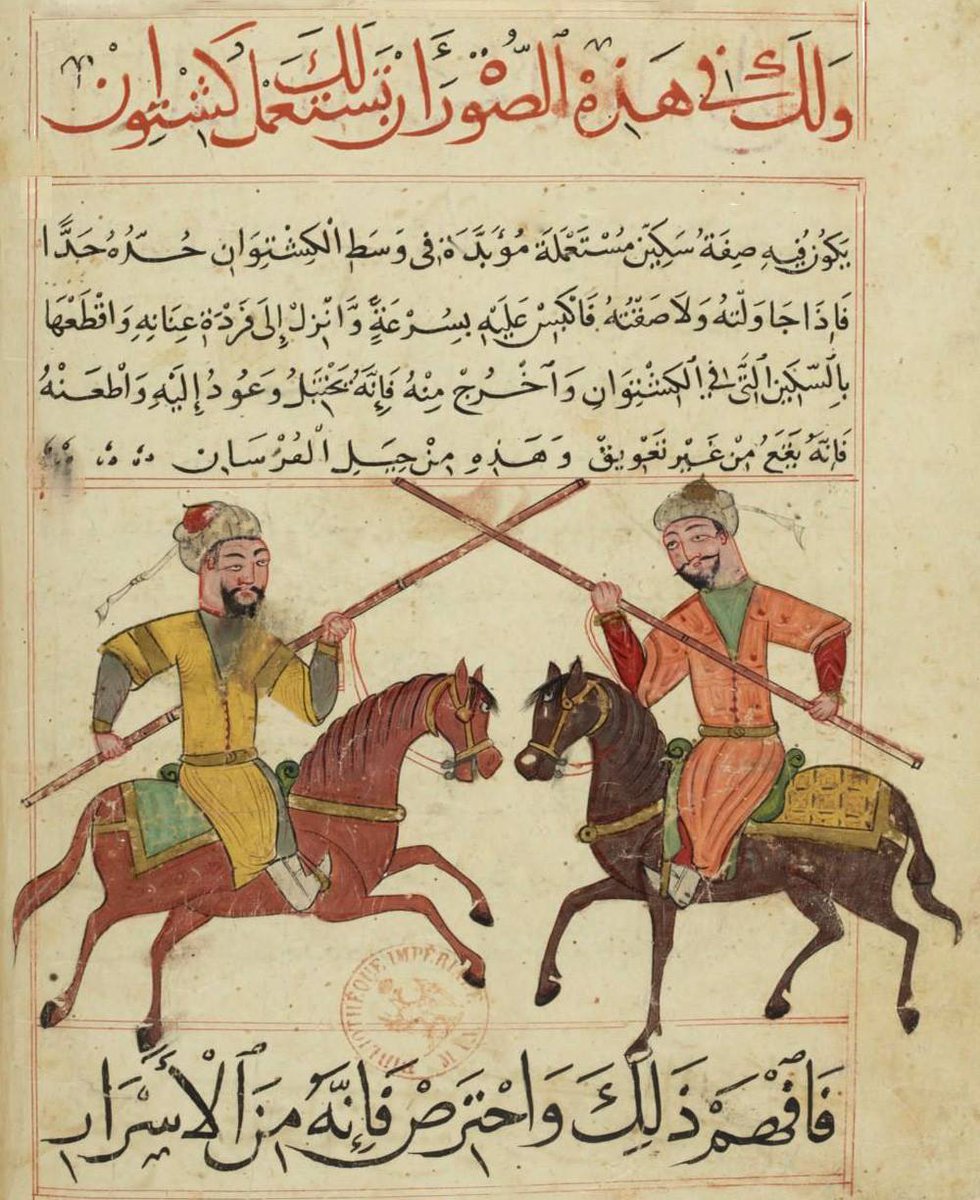 وَلَكَ فِي هَذِهِ ٱلصُّورَةِ أَنْ تَسْتَعْمِلَ لَكَ كَشْتِوَانْ
يَكُونُ فِيهِ صِفَةُ سِكِّينٍ مُسْتَعْمَلَةَ مُؤَبَّدَةً فِى وَسَطِ الْكِشْتِوَانِ حُدُّهُ حَدًّا
فَاِذَا جَاوَلْتَهُ وَلَاصَقْتُهُ فَاكْبِسْ عَلَيْهِ بِسُرْعَةٍ وَّانْزِلْ إِلَى فَرْدَةِ عِنَانِهِ وَاقْطَعْهَا
بِالسِّكِّينِ الَّتِي فِي ٱلكَشْتِوَانِ وَٱخْرُجْ مِنْهُ فَإِنَّهُ يَخْتَبِلُ وَعُودُ إِلَيْهِ وَاطْعَنْهُ
فَاِنَّهُ يَقَعُ مِنْ غَيْرِ تَعْوِيقْ وَهَذِهِ مِنْ حِيَلِ الْفُرْسَانِ
BIBLIOTHÈQUE IMPÉRIALE
فَافْهَمْ ذَلِكَ وَاحْتَرِصْ فَإِنَّهُ مِنَ ٱلْأَسْرَارِ